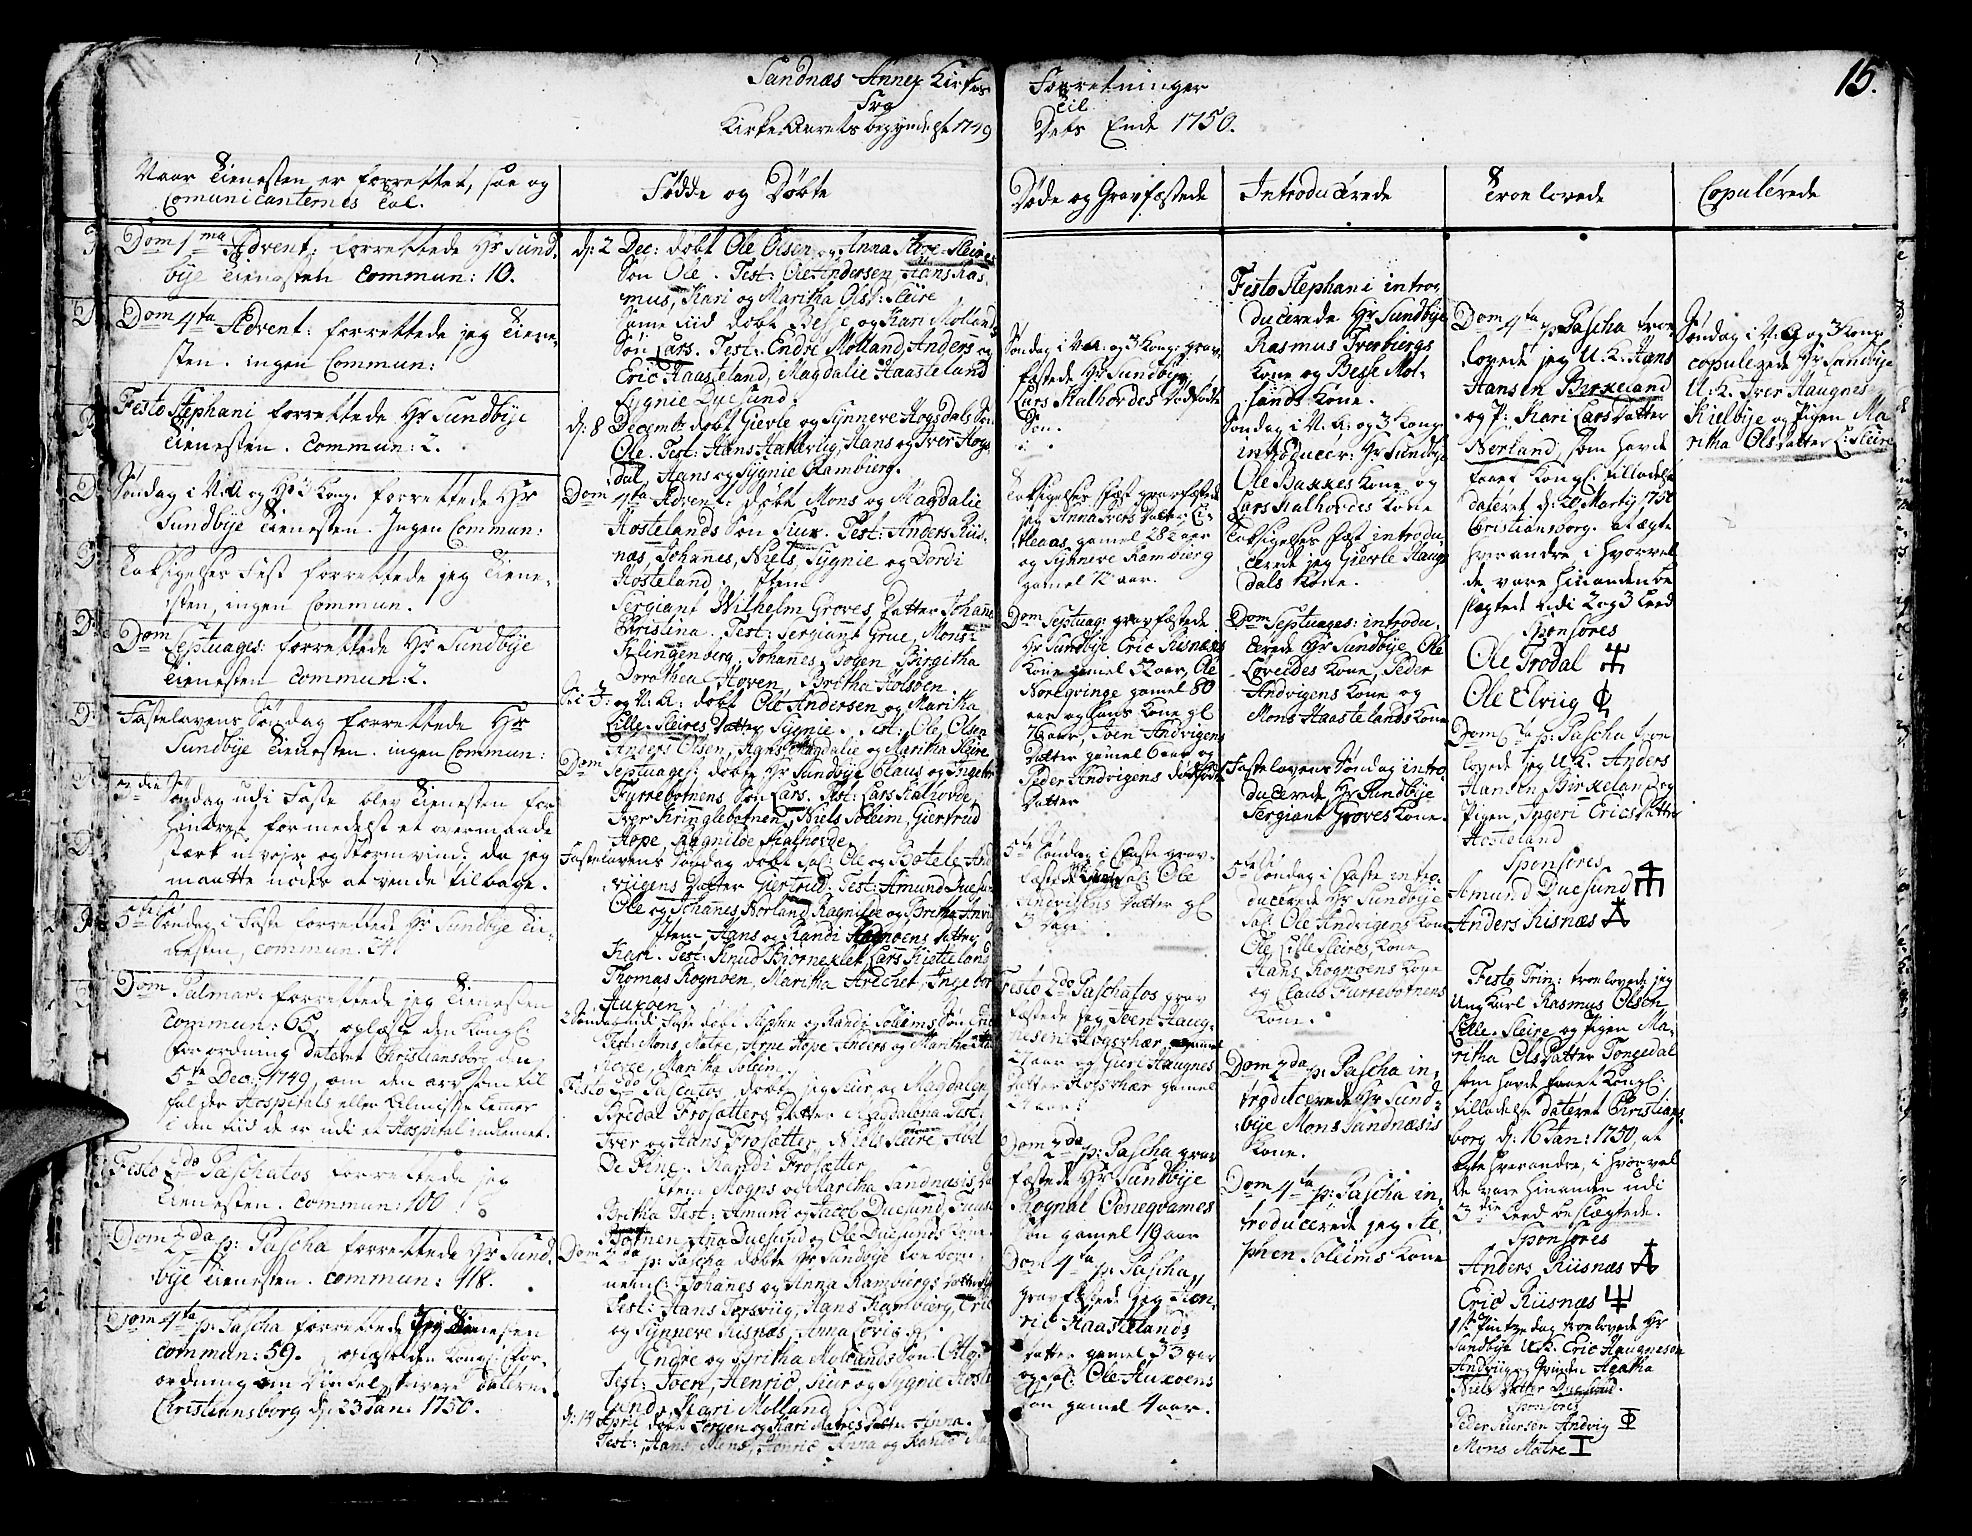 Sandnæs Annex Kirkes Forretninger
Fra til
Kirke-Aarets begyndelse 1749 Dets Ende 1750.
15.
Naar Tienesten er forrettet, saa og
Comunicanternes Tal.
Dom 1ma Advent: forrettede Hr Sund-
bye Tienesten commun: 10.
Dom 4ta Advent: forrettede jeg Tiene-
sten. ingen Commun:
Festo Stephani forrettede Hr Sundbye
Tienesten. commun: 2.
Søndag i N: A og H: 3 Kong. forrettede Hr
Sundbye Tienesten. Ingen Commun:
Taksigelses Fest forrettede jeg Tiene-
sten, ingen Commun.
Dom Septuages: forrettede Hr Sundbye
Tienesten commun: 2.
Fastelavens Søndag forrettede Hr
Sundbye Tienesten. ingen Commun:
Søndag udi Faste blev Tienesten for-
hindret formedelst et overmaade
stærk uvejr og Stormvind, da jeg
maatte nødes at vende tilbage.
5te Søndag i Faste forrettede Hr Sundbye Tie-
nesten, commun: 24.
Dom Palmar: forrettede jeg Tienesten
commun: 65, oplæste den Kongl:
forordning dateret Christiansborg den
5te Dec: 1749, om den arv som til-
falder Hospitals eller Almisse Lemmer
i den tiid de er udi et Hospital indlemet.
Festo 2do Paschatos forrettede jeg
Tienesten. commun: 100
Dom 2da p: Pascha forrettede Hr Sund-
bye Tienesten. commun: 118.
Dom 4ta p: Pascha forrettede jeg Tienesten
commun: 59. oplæste den Kongl: for-
ordning om
Christiansborg d: 23 Jan: 1750.
Fødde og Døbte
d: 2 Dec: døbt Ole Olsen og Anna Sleires
Søn Ole. Test: Ole Andersen Hans Ras-
mus, Kari og Maritha Olsd: Sleire
Same tiid døbt Besse og Kari Mollands
Søn Lars. Test: Endre Molland, Anders og
Eric Haasteland, Magdalie Haasteland
Sygnie Duesund.
d: 8 Decembr døbt Gierle og Synneve Hogsdals Søn
Ole. Test: Hans Haktærlig, Hans og Iver Hogs-
dal, Hans og Sygnie Rambierg.
Dom 4ta Advent: døbt Mons og Magdalie
Hostelands Søn Siur. Test: Anders Riis-
næs, Johanes, Niels, Sygnie og Dordi
Hosteland. Item
Sergiant Wilhelm Groves Datter Johane
Christina. Test: Sergiant Grue, Mons:
Klingenberg, Johannes Bogen Birgitha
Dorothea Hoven, Britha Kolsøen.
døbt Ole Andersen og Maritha
Lille-Sleires Datter Sygnie. Test: Ole, Olsen
Anders Olsen, Hans, Magdalie og Maritha Sleire
Dom Septuages: døbte Hr Sundbye Claus og Ingebr:
Furrebotnens Søn Lars. Test: Lars Kalhorde,
Iver Kringlebotnen, Niels Soleim, Giertrud
Hope, Ragnilde Kalhorde
Fastelavens Søndag døbt Sal: Ole og Botele And-
viigens Datter Giertrud: Test: Amund Duesund
Ole og Johanes Norland, Ragnilde og Britha Anviig
Item Hans og Randi Rognøens datter
Kari. Test: Knud Biørneklet, Lars Kieteland
Thomas Rognøen, Maritha Arechet, Ingebor
Auxøen
2 Søndag udi Faste døbt Stephen og Randi Soleims Søn
Test: Mons Matre, Arne Hope Anders og Martha
Maritha Soleim.
Festo 2do Pascatos, døbt jeg Siur og Magdalena
Bredal Frosætters Datter Magdalena Test:
Iver og Hans Frosætter, Niels Sleire Abel
De Fine, Randi Frøsætter
Item Mogns og Maritha Sandnæsis
Britha Test: Amund og Jacob Duesund,
Botnen Ana Duesund og Ole Duesunds Kone
Dom 2da p: Pascha døbte Hr Sundbye
nemL: Johanes og Anna Rambergs datter
Test: Hans Torsviig, Hans Ramberg, Eric
og Synneve Riisnæs, Anna
Endre og Britha Mollands Søn
Test: Joen, Henric, Siur og Sygnie
Kari Molland
d: 14 April døbt Jørgen og Kari Matres Datter Anna.
Test: Hans Mons, Henric Anna og Randi
Døde og Gravfæstede
Søndag i N: A og 3 Kong: grav-
fæstede Hr Sundbye
Lars Kalhordes dødfødte
Søn.
Taksigelses fæst gravfæstede
jeg Anna Ivers Datter
gamel 82 aar
og Synneve Ramberg
gamel 72 aar.
Dom Septuag: gravfæstede
Hr Sundbye Eric Riisnæses
Kone gamel 52 aar, Ole
Norlqvinge gamel 80
aar og hans Kone gl
76 aar, Joen Andvigens
Datter gamel 6 aar og
Peder Andvigens dødfødte
Datter
5te Søndag i Faste grav-
fæstede Sal: Ole
Andvigens Datter gl
3 Dage.
Festo 2do Paschatos grav-
fæstede jeg Joen Haug-
nesen Hogsvær, gamel
aar og Guri Haugnes
datter Hogsvær gamel
24 aar.
Dom 2da p: Pascha grav-
fæstede Hr Sundbye
Rognal Odneqvames
Søn gamel 19 aar
Dom 4ta p: Pascha
gravfæstede jeg Hen-
ric Haastelands
datter gamel 33 aar
og Sal: Ole Auxøens
Søn gamel 4 aar.
Introducerede
Festo Stephani intro-
ducerede Hr Sundbye
Rasmus Tverbergs
Kone og Besse Mol-
lands Kone.
Søndag i N: A: og 3 Kong
introducer: Hr Sundbye
Ole Bakkes Kone og
Lars Kalhordes Kone
Taksigelses fæst introdu-
cerede jeg Gierle Haugs-
dals Kone.
Dom Septuages: introdu-
cerede Hr Sundbye Ole
Løveides Kone, Peder
Andvigens Kone og
Mons Haastelands Kone
Fastelavens Søndag intro-
ducerede Hr Sundbye
Sergiant Groves Kone.
5te Søndag i Faste intro-
ducerede Hr Sundbye
Sal: Ole Andvigens Kone
Ole Lille Sleires Kone
Hans Rognøens Kone
og Claus Furrebotnens
Kone.
Dom 2da p: Pascha in-
troducerede Hr Sund-
bye Mons Sandnæsis
Kone.
Dom 4ta p: Pascha in-
troducerede jeg Ste-
phen Soleims Kone
Troelovede
Dom 4ta p: Pascha troe-
lovede jeg U.K. Hans
Hansen Birkeland
og P: Kari Larsdatter
Norland, som havde
faaet Kongl: tilladelse
dateret d: 20 Marty 1750
Christiansborg. at ægte
hverandre i hvorvel
de vare hinanden be-
slægtede udi 2 og 3 Leed
Sponsores
Ole Trodal
Ole Elviig
Dom p: Pascha troe-
lovede jeg U.K. Anders
Hansen Birkeland og
Pigen, Ingeri Ericsdatter
Hosteland
Sponsores
Amund Duesund
Anders Risnæs
Festo Trin: troelovede jeg
Ung Karl Rasmus Olsøn
Lille-Sleire og Pigen Ma-
ritha Olsdatter Tongedal
som havde faaet Kongl:
tilladelse dateret Christians-
borg d: 16 Jan: 1750, at
ægte hverandre, i hvorvel
de vare hinanden udi
3die Leed beslægtede.
Sponsores
Anders Riisnæs
Eric Riisnæs
1st Pintzedag troelovede Hr
Sundbye U.K. Eric Haugnesøn
Andviig og Qvinden Agatha
Niels datter Duesund.
Sponsores
Peder Siursen Andvig
Mons Matre
Copulerede
Søndag i N: A og 3 Kong:
copulerede Hr Sundbye
U.K. Iver Haugnes
Kielbye og Pigen Ma-
ritha Olsdatter L: Sleire